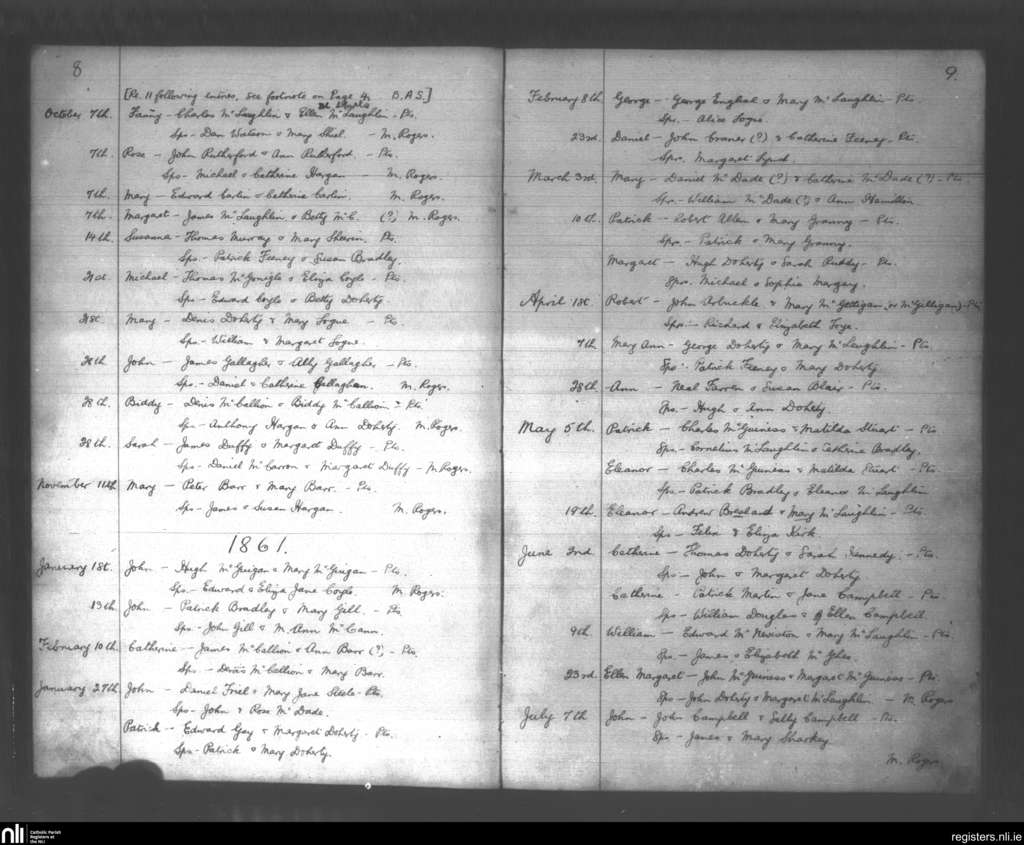 8
[Re. 11 following entries, see footnote on Page 4. B.A.S.]
October 7th. Fanny - Charles McLaughlin & Ellen McLaughlin - Pts.
Sps - Dan Watson & Mary Shiel. - M. Rogers.
7th. Rose - John Rutherford & Ann Rutherford. - Pts.
Sps - Michael & Catherine Hargan - M. Rogers.
7th. Mary - Edward Carlin & Catherine Carlin. M. Rogers.
7th. Margaret - James McLaughlin & Betty McC. (?) M. Rogers.
14th. Susanna - Thomas Murray & Mary Sheerin. Pts.
Sps - Patrick Feeney & Susan Bradley.
21st. Michael - Thomas McGonigle & Eliza Coyle - Pts.
Sps - Edward Coyle & Betty Doherty.
21st. Mary - Denis Doherty & Mary Logue - Pts.
Sps - William & Margaret Logue.
28th. John - James Gallagher & Ally Gallagher - Pts.
Sps - Daniel & Catherine Gallagher. M. Rogers.
28th. Biddy - Denis McCallion & Biddy McCallion - Pts.
Sps - Anthony Hargan & Ann Doherty. M. Rogers.
28th. Sarah - James Duffy & Margaret Duffy - Pts.
Sps - Daniel McCarron & Margaret Duffy - M. Rogers.
November 11th. Mary - Peter Barr & Mary Barr. - Pts.
Sps - James & Susan Hargan. M. Rogers.
1861.
January 1st. John - Hugh McGuigan & Mary McGuigan - Pts.
Sps - Edward & Eliza Jane Coyle. M. Rogers.
13th. John - Patrick Bradley & Mary Gill. - Pts
Sps - John Gill & M. Ann McCann.
February 10th. Catherine - James McCallion & Ann Barr (?) - Pts.
Sps - Denis McCallion & Mary Barr.
January 27th. John - Daniel Friel & Mary Jane Steele - Pts.
Sps - John & Rose McDade.
Patrick - Edward Gay & Margaret Doherty - Pts.
Sps - Patrick & Mary Doherty.
9.
February 8th George - George English & Mary McLaughlin - Pts.
Sps - Alice Logue.
23rd. Daniel - John Craner (?) & Catherine Feeney - Pts.
Sps. Margaret Lynch.
March 3rd. Mary - Daniel McDade (?) & Catherine McDade (?) - Pts.
Sps - William McDade (?) & Ann Hamilton.
10th. Patrick - Robert Allen & Mary Granny - Pts.
Sps - Patrick & Mary Granny.
Margaret - Hugh Doherty & Sarah Ruddy - Pts.
Sps. Michael & Sophia Morgan.
April 1st. Robert - John Arbuckle & Mary McGettigan (or McGilligan) - Pts
Sps - Richard & Elizabeth Toye.
7th. Mary Ann - George Doherty & Mary McLaughlin - Pts.
Sps - Patrick Feeney & Mary Doherty
28th. Ann - Neal Farren & Susan Blair - Pts.
Sps - Hugh & Ann Doherty.
May 5th. Patrick - Charles McGuiness & Matilda Stuart - Pts
Sps - Cornelius McLaughlin & Catherine Bradley.
Eleanor - Charles McGuiness & Matilda Stuart - Pts.
Sps - Patrick Bradley & Eleanor McLaughlin
19th. Eleanor - Andrew & Mary McLaughlin - Pts.
Sps - Felix & Eliza Kirk.
June 2nd. Catherine - Thomas Doherty & Sarah Kennedy. - Pts.
Sps - John & Margaret Doherty.
Catherine - Patrick Martin & Jane Campbell - Pts.
Sps - William Douglas & Ellen Campbell.
9th. William - Edward McNewton & Mary McLaughlin - Pts.
Sps - James & Elizabeth McGhee.
23rd. Ellen Margaret - John McGuiness & Margaret McGuiness - Pts.
Sps - John Doherty & Margaret McLaughlin - M. Rogers
July 7th. John - John Campbell & Sally Campbell - Pts.
Sps - James & Mary Sharkey
M. Rogers.
nli
Catholic Parish
Registers at
the NLI
registers.nli.ie